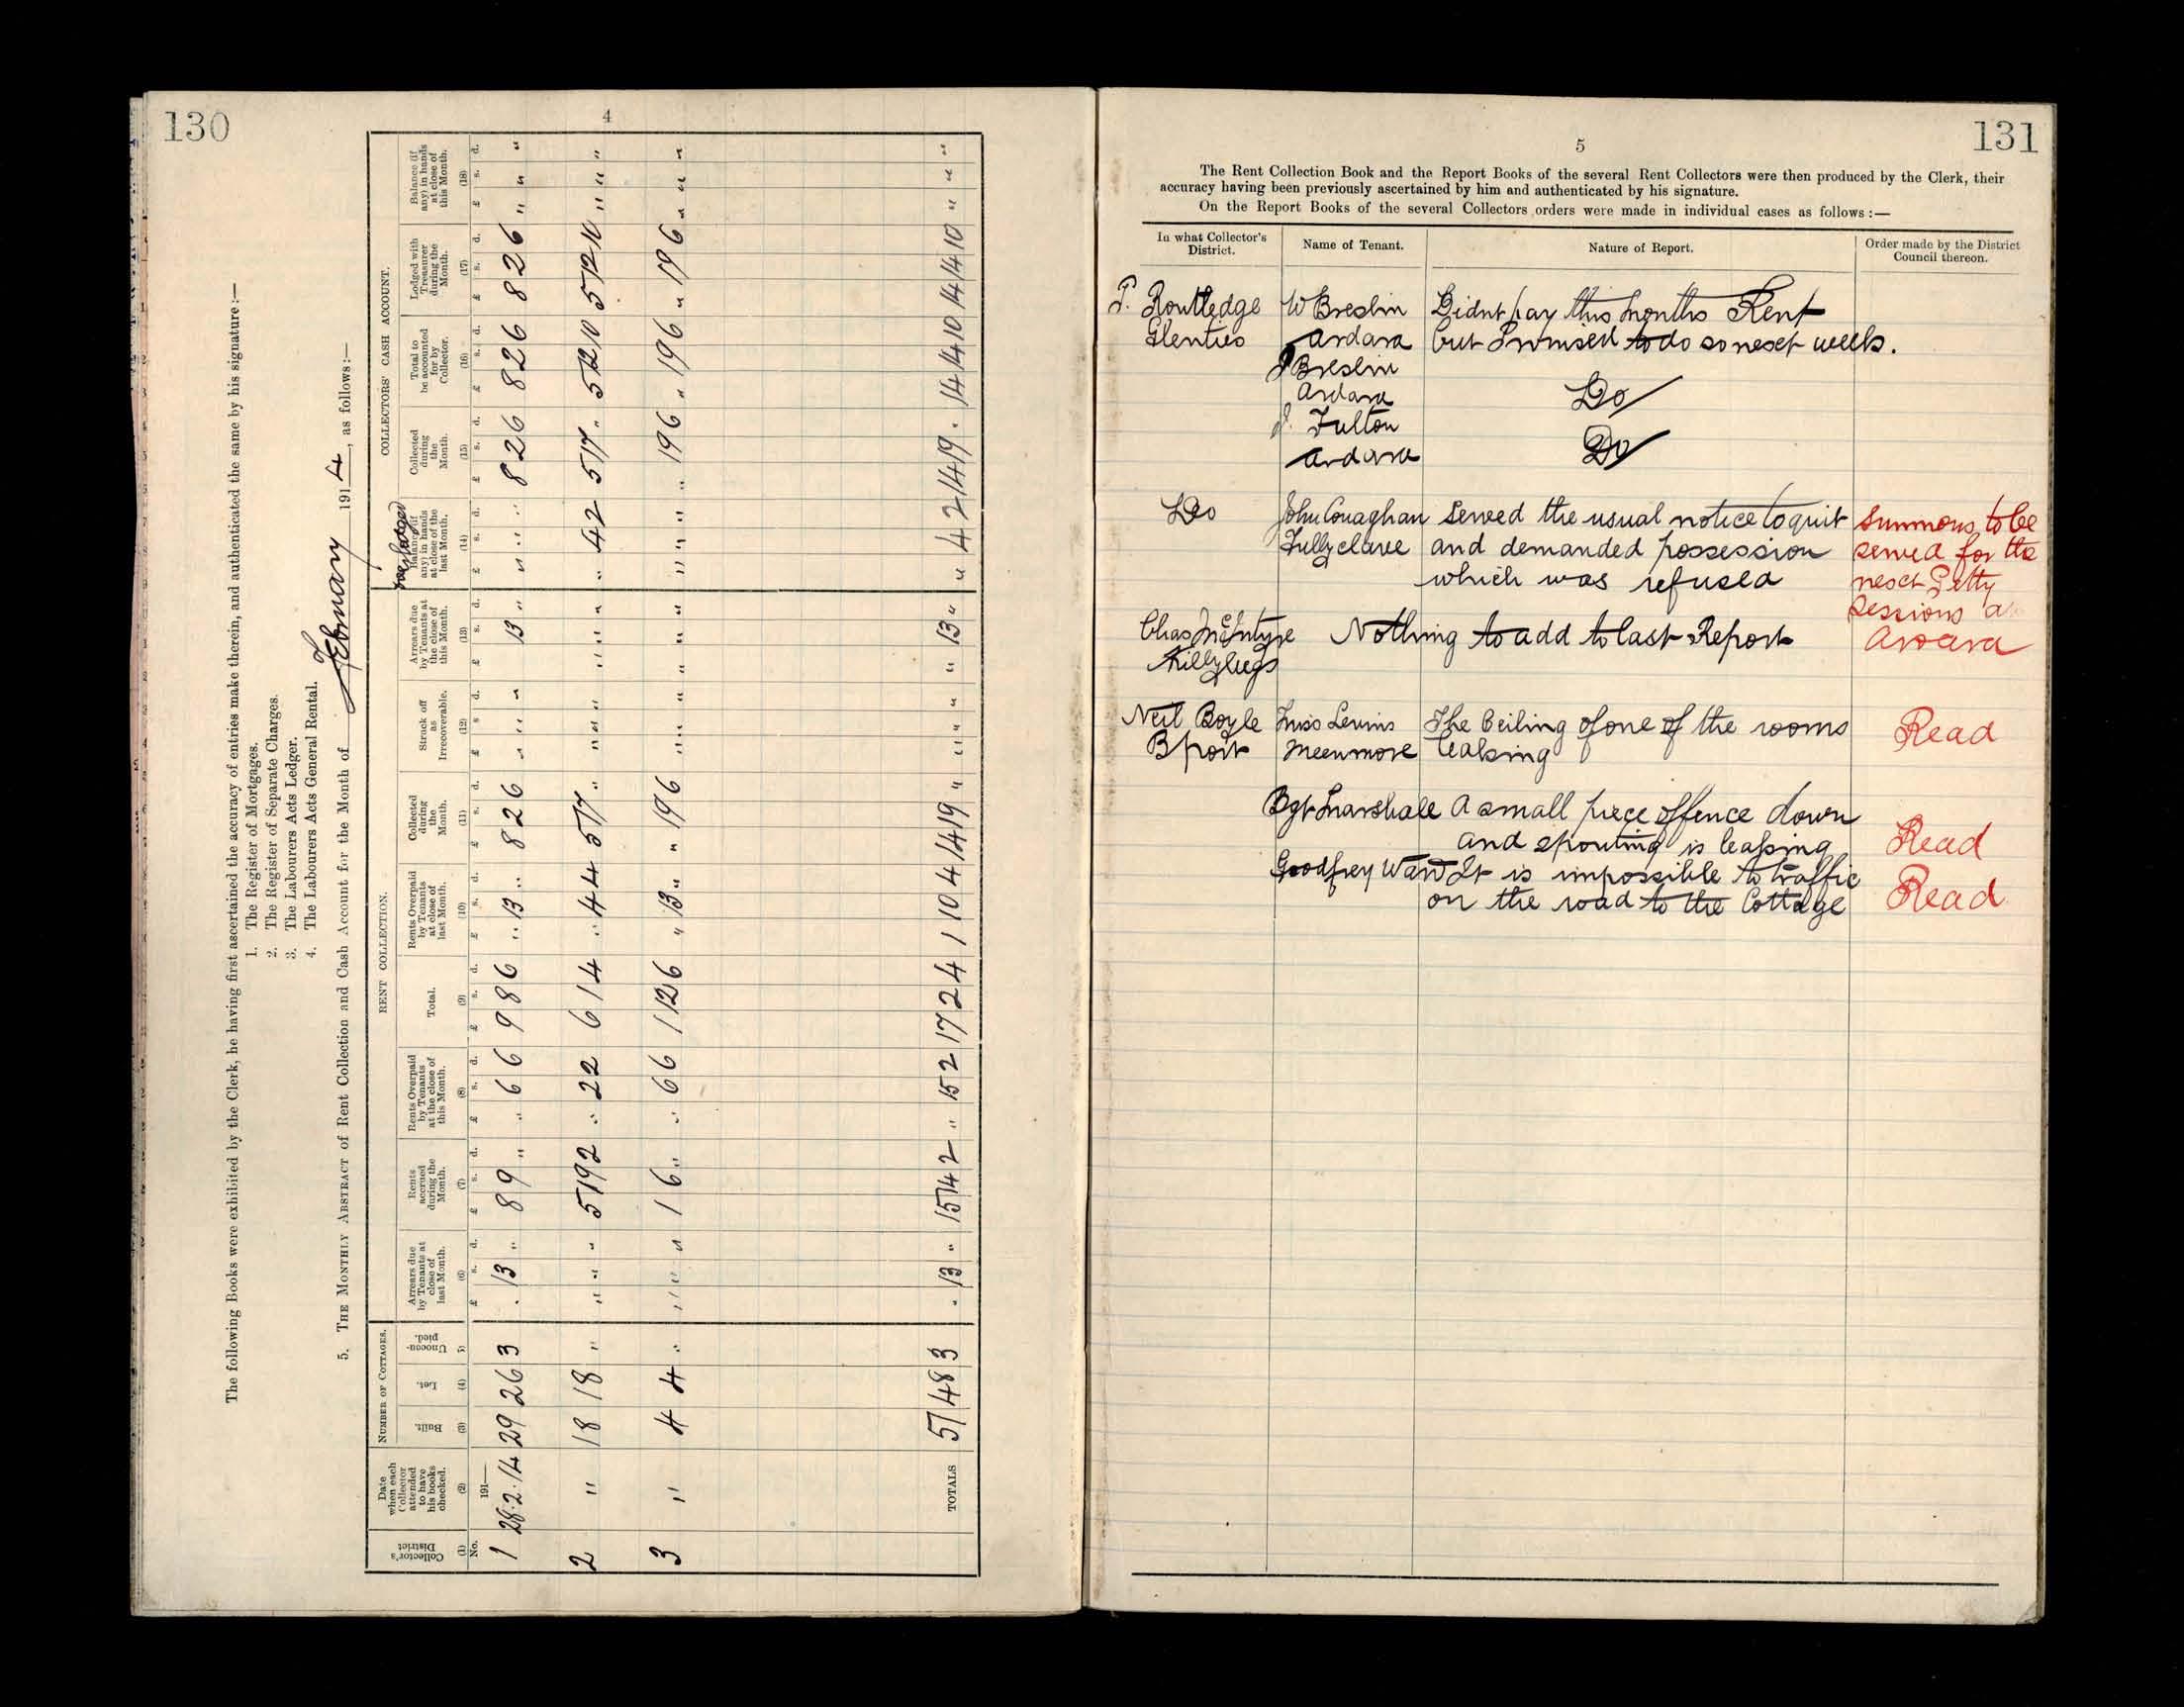 130
4
The following Books were exhibited by the Clerk, he having first ascertained the accuracy of entries make therein, and authenticated the same by his signature:—
1. The Register of Mortgages.
2. The Register of Separate Charges.
3. The Labourers Acts Ledger.
4. The Labourers Acts General Rental.
5. THE MONTHLY ABSTRACT of Rent Collection and Cash Account for the Month of February 1914, as follows:—
NUMBER OF COTTAGES. RENT COLLECTION. COLLECTORS' CASH ACCOUNT.
Collector's District (1) No.
Date when each Collector attended to have his books checked. (2) 191—
Built. (3)
Let. (4)
Unoccupied. (5)
Arrears due by Tenants at close of last Month. (6) £ s. d.
Rents accrued during the Month. (7) £ s. d.
Rents Overpaid by Tenants at the close of this Month. (8) £ s. d.
Total. (9) £ s. d.
Rents Overpaid by Tenants at close of last Month. (10) £ s. d.
Collected during the Month. (11) £ s. d.
Struck off as Irrecoverable. (12) £ s. d.
Arrears due by Tenants at the close of this Month. (13) £ s. d.
Balance (if any) in hands at close of the last Month. (14) £ s. d.
Collected during the Month. (15) £ s. d.
Total to be accounted for by Collector. (16) £ s. d.
Lodged with Treasurer during the Month. (17) £ s. d.
Balance (if any) in hands at close of this Month. (18) £ s. d.
1 28.2.14 29 26 3 " 13 " 8 9 " " 6 6 9 8 6 " 13 " 8 2 6 " " " 13 " " " " 8 2 6 8 2 6 8 2 6 " " "
2 " 18 18 " " " " 5 19 2 " 2 2 6 1 4 " 4 4 5 17 " " " " " " " " 4 2 5 17 " 5 12 10 5 12 10 " " "
3 " 4 4 " " " " 1 6 " " 6 6 1 12 6 " 13 " " 19 6 " " " " " " " " " " 19 6 " 19 6 " 19 6 " " "
TOTALS 51 48 3 " 13 " 15 14 2 " 15 2 17 2 4 1 10 4 14 19 " " " " " 13 " " 4 2 14 19 " 14 14 10 14 14 10 " " "
131
5
The Rent Collection Book and the Report Books of the several Rent Collectors were then produced by the Clerk, their
accuracy having been previously ascertained by him and authenticated by his signature.
On the Report Books of the several Collectors orders were made in individual cases as follows:—
In what Collector's District. Name of Tenant. Nature of Report. Order made by the District Council thereon.
P. Routledge W Breslin Didnt pay this months Rent
Glenties Ardara but Promised to do so next week.
J Breslin
Ardara Do
J. Fulton
Ardara Do
Do John Conaghan Served the usual notice to quit Summons to be
Tullycleave and demanded possession served for the
which was refused next Petty
Sessions at
Chas McEntyre Nothing to add to last Report Ardara
Killybegs
Neil Boyle Miss Lewins The Ceiling of one of the rooms Read
B port Meenmore leaking
Bgt Marshall A small piece of fence down
and spouting is leaking Read
Godfrey Ward It is impossible to traffic
on the road to the Cottage Read